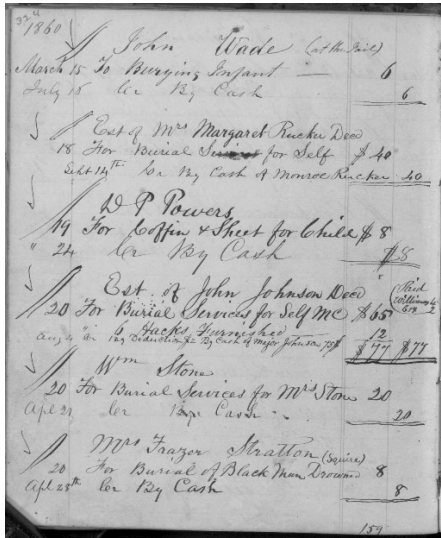 1860
John Wade (at the Jail)
March 15 To Burying Infant — 6
July 16 Cr By Cash 6
Est of Mrs Margaret Rucker Decd
18 For Burial for Self $40
Sept 14th Cr By Cash of Monroe Rucker 40
D P Powers
19 For Coffin & Sheet for Child $8
" 24 Cr By Cash $8
Est. of John Johnson Decd
20 For Burial Services for Self MC $65
6 Hacks Furnished 12
By Deduction $2 By Cash of Major Johnson 75$ $77 $77
Wm Stone
20 For Burial Services for Mrs Stone 20
Apl 21 Cr By Cash 20
Mrs Frazor Stratton (Squire)
20 For Burial of Black Man Drowned 8
Apl 28th Cr By Cash 8
159